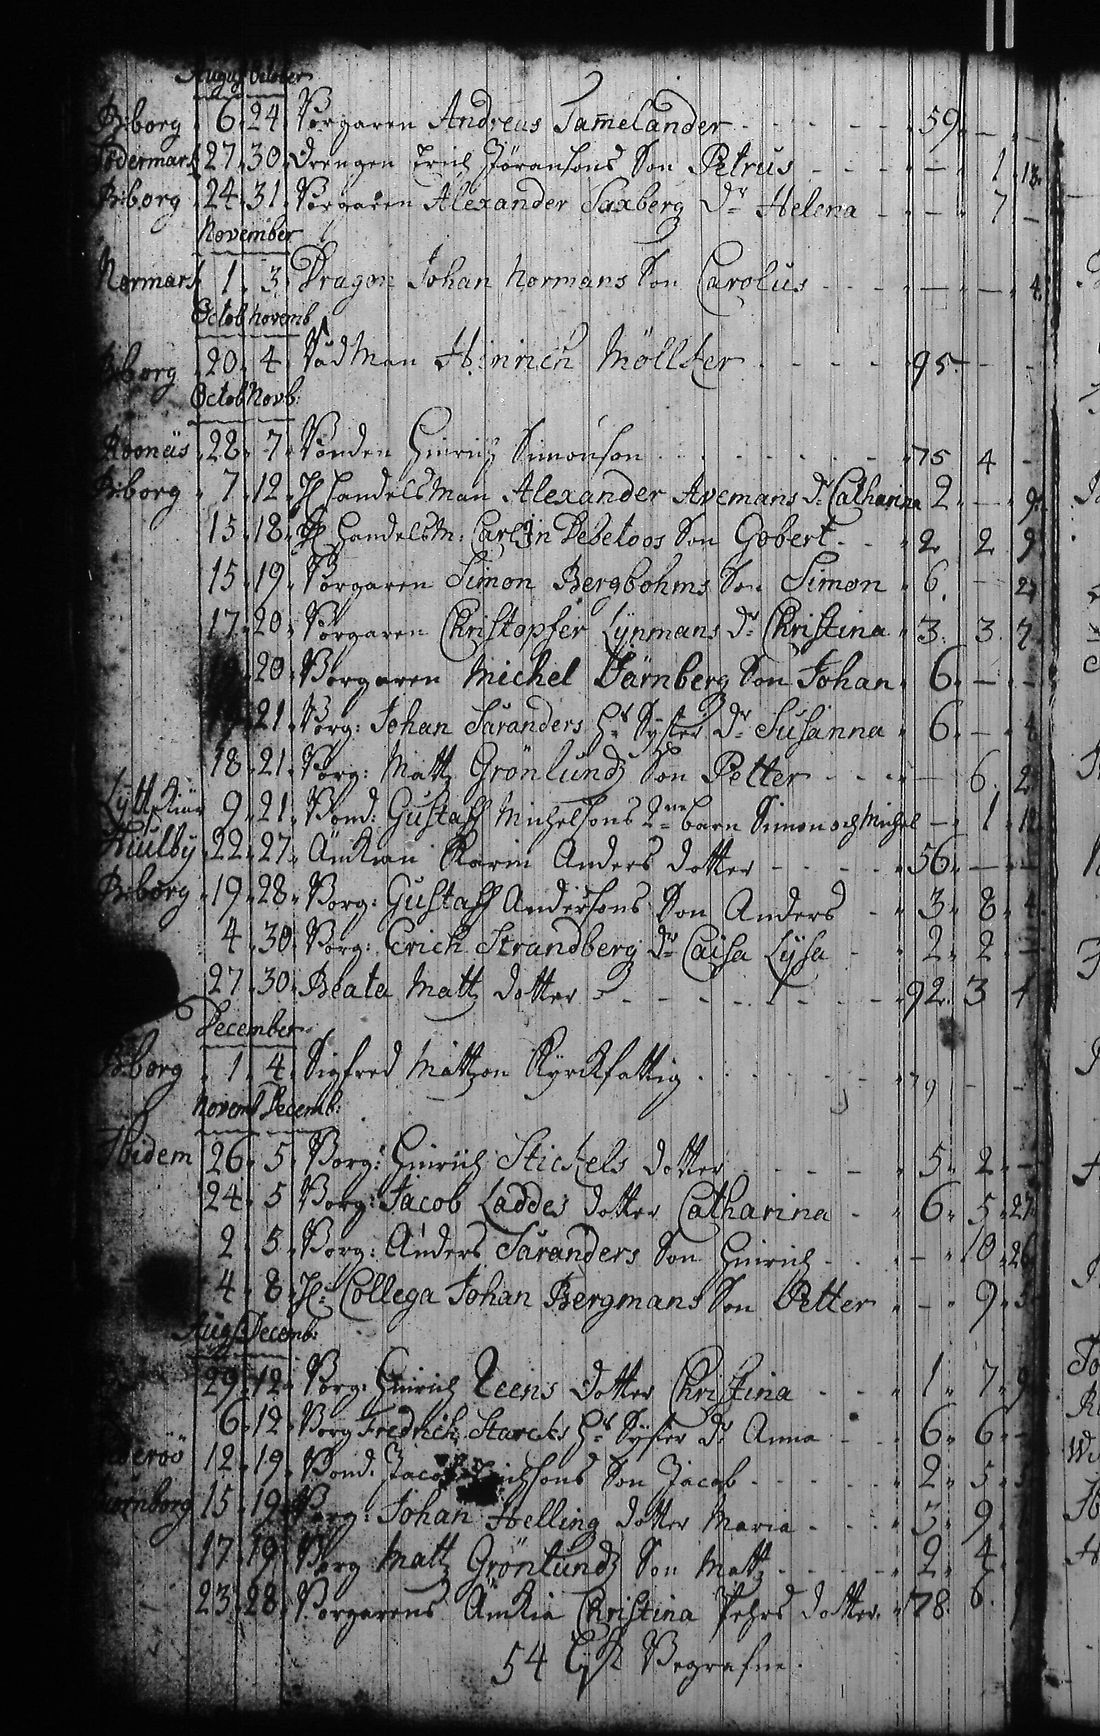 August October
Biborg 6. 24. Borgaren Andreas Tamelander 59. — —
Södermark 27. 30. Drengen Erich Jöransons Son Petrus — 1. 13.
Biborg 24. 31. Borgaren Alexander Saxberg Dr Helena — 7 —
November
Normark 1. 3. Dragon Johan Normans Son Carolus — — 4.
Octob Novemb
Biborg 20. 4. Rådman Hinrich Möller 95. — —
Octob Novb:
28. 7. Bonden Hinrich Simonson 75 4 —
Biborg 7. 12. H. Handelsman Alexander Avemans Dr Catharina 2. — 9.
15. 18. H. Handelsm: Debeloos Son Gobert 2 2 9
15. 19. Borgaren Simon Bergbohms Son Simon 6. —
17. 20. Borgaren Christopfer Lynmans Dr Christina 3. 3 7
20. Borgaren Michel Son Johan 6. — —
21. Borg: Johan Saranders Hs Syster Dr Susanna 6. — 4
18. 21. Borg: Matts Grönlunds Son Petter — 6. 2
9. 21. Bond: Gustaff Michelsons 2ne barn Simon och Michel — 1
22. 27. Änkian Karin Anders dotter 56. — —
Biborg 19. 28. Borg: Gustaff Andersons Son Anders 3. 8. 4.
4. 30. Borg: Erich Strandberg Dr Caisa Lysa 2. 2. —
27. 30. Beata Matts dotter 92. 3
December
Biborg 1. 4. Sigfred Mattzon Kyrckfattig 79 — —
Novemb Decemb:
Ibidem 26. 5. Borg: Hinrich Stickels dotter 5. 2. —
24. 5. Borg: Jacob Laddes dotter Catharina 6. 5. 27.
2. 5. Borg: Anders Saranders Son Hinrich — 10. 26
4. 8. H: Collega Johan Bergmans Son Petter — 9.
Aug: Decemb:
29. 12. Borg: Hinrich Dotter Christina 1. 7. 9
6. 12. Borg Fredrich Starcks Hs Syster Dr Anna 6. 6. —
12. 19. Bond. Jacob Son Jacob 2. 5. 5
15. 19. Borg: Johan Helling dotter Maria 3. 9.
17. 19. Borg Matts Grönlunds Son Matts 2. 4.
23. 28. Borgarens Änkia Christina Pehrs dotter. 78. 6.
54 Begrafne.